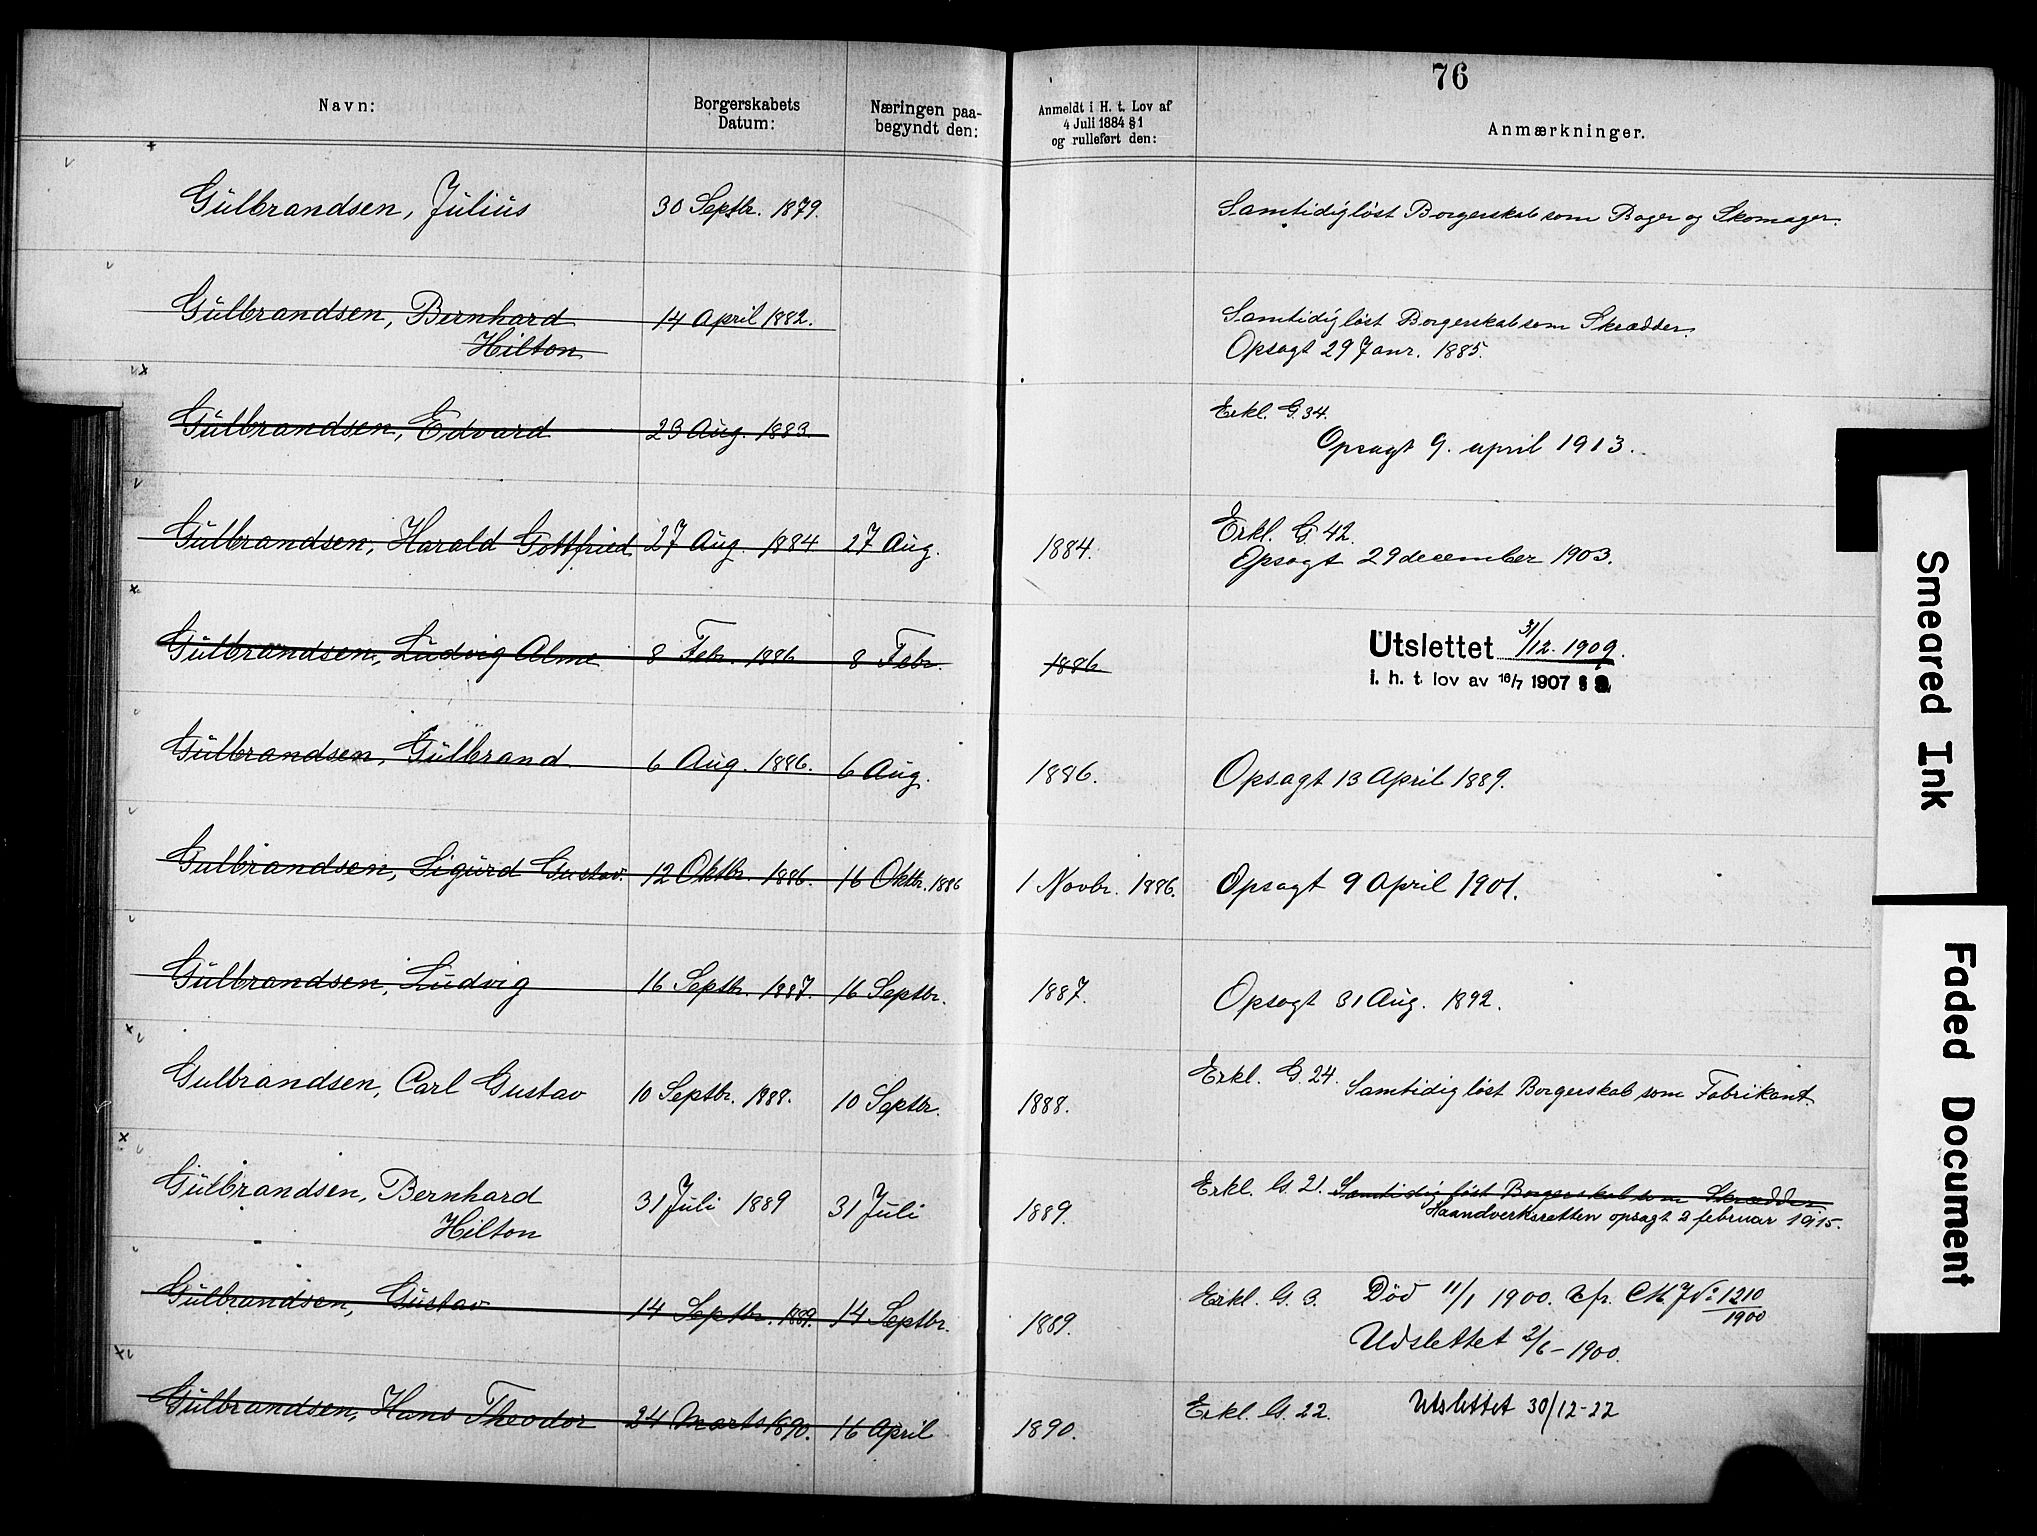 76
Navn: Borgerskabets Datum: Næringen paa- begyndt den: Anmeldt i H. t. Lov af 4 Juli 1884 § 1 og rulleført den: Anmærkninger.
Gulbrandsen, Julius 30 Septbr. 1879. Samtidig løst Borgerskab som Bager og Skomager.
Gulbrandsen, Bernhard 14 April 1882. Samtidig løst Borgerskab som Skrædder.
Hilton Opsagt 29 Janr. 1885.
Gulbrandsen, Edvard 23 Aug. 1883. Erkl. G. 34.
Opsagt 9. april 1913.
Gulbrandsen, Harald Gottfried 27 Aug. 1884 27 Aug. 1884. Erkl. G 42.
Opsagt 29 december 1903.
Gulbrandsen, Ludvig Alme 8 Febr. 1886 8 Febr. 1886 Utslettet 31/12. 1909.
i. h. t. lov av 16/7 1907 §
Gulbrandsen, Gulbrand 6 Aug. 1886. 6 Aug. 1886. Opsagt 13 April 1889.
Gulbrandsen, Sigurd Gustav. 12 Oktbr. 1886. 16 Oktbr. 1886 1 Novbr. 1886. Opsagt 9 April 1901.
Gulbrandsen, Ludvig 16 Septbr. 1887. 16 Septbr. 1887. Opsagt 31 Aug. 1892.
Gulbrandsen, Carl Gustav 10 Septbr. 1888. 10 Septbr. 1888. Erkl. G. 24. Samtidig løst Borgerskab som Fabrikant.
Gulbrandsen, Bernhard 31 Juli 1889 31 Juli 1889. Erkl. G. 21. Samtidig løst Borgerskab som Skrædder
Hilton Haandverksretten opsagt 2 februar 1915.
Gulbrandsen, Gustav 14 Septbr. 1889. 14 Septbr. 1889. Erkl. G. 3. Død 11/1 1900. cfr. 1210/1900
Udslettet 2/6 - 1900.
Gulbrandsen, Hans Theodor 24 Marts 1890. 16 April 1890. Erkl. G. 22. Utslettet 30/12-22
Smeared Ink
Faded Document